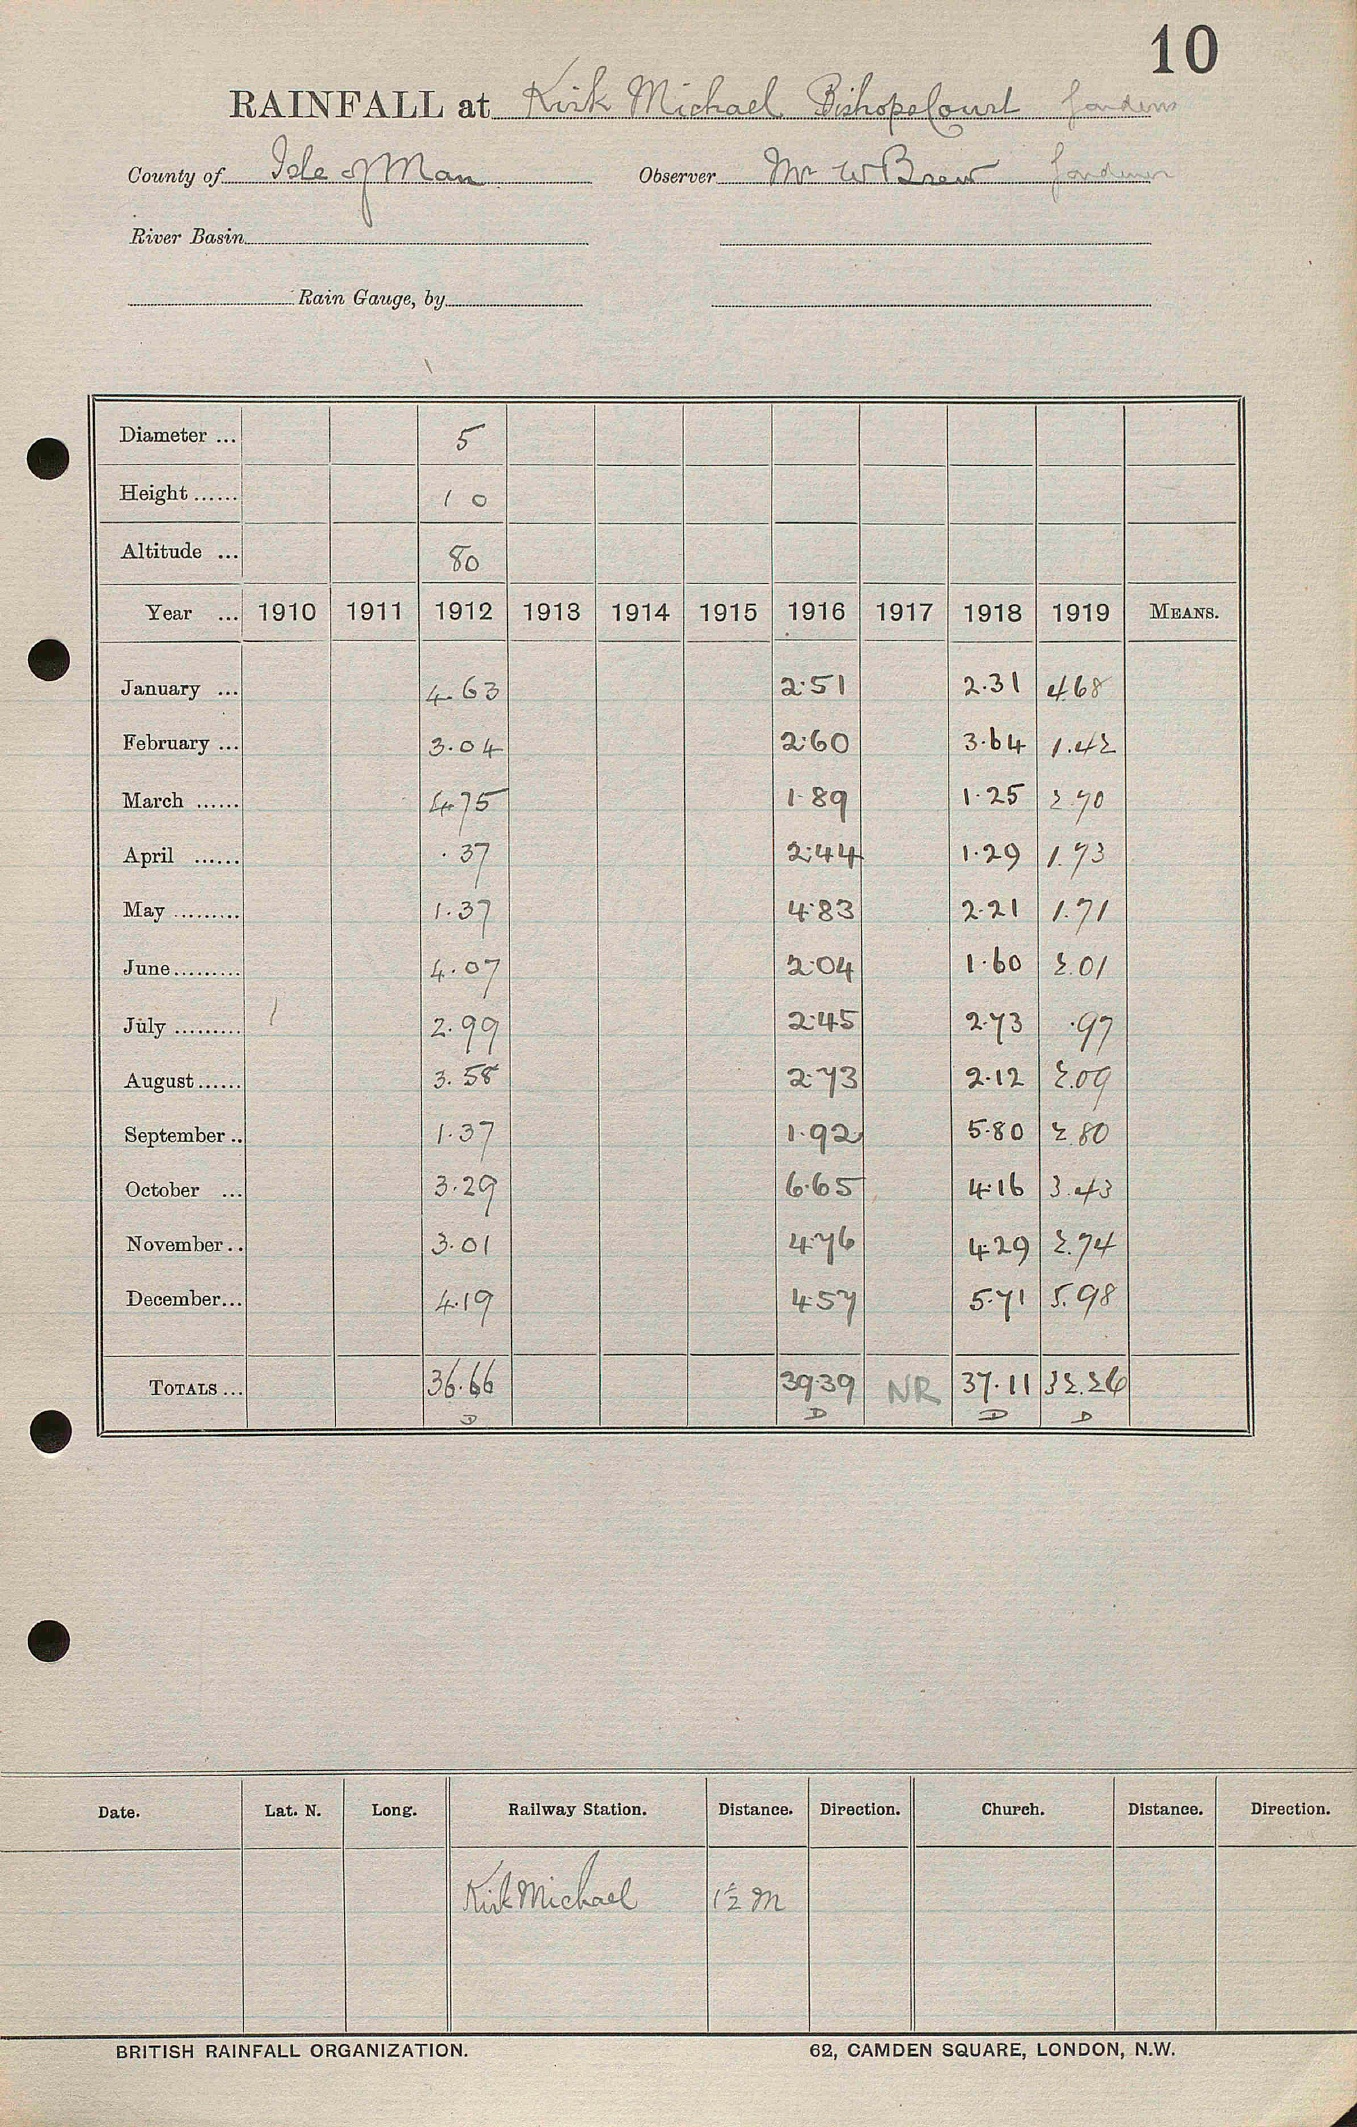 10
RAINFALL at Kirk Michael Bishops Court Gardens
County of Isle of Man Observer Mr W Brew Gardener
River Basin
Rain Gauge, by
Diameter ... 5
Height ...... 1 0
Altitude ... 80
Year ... 1910 1911 1912 1913 1914 1915 1916 1917 1918 1919 MEANS.
January ... 4.63 2.51 2.31 4.68
February ... 3.04 2.60 3.64 1.42
March ...... 4.75 1.89 1.25 2.70
April ...... .37 2.44 1.29 1.73
May ......... 1.37 4.83 2.21 1.71
June ......... 4.07 2.04 1.60 2.01
July ......... 2.99 2.45 2.73 .97
August ...... 3.58 2.73 2.12 2.09
September .. 1.37 1.92 5.80 2.80
October ... 3.29 6.65 4.16 3.43
November .. 3.01 4.76 4.29 2.74
December ... 4.19 4.57 5.71 5.98
TOTALS ... 36.66 39.39 NR 37.11 32.26
D D D D
Date. Lat. N. Long. Railway Station. Distance. Direction. Church. Distance. Direction.
Kirk Michael 1½ M
BRITISH RAINFALL ORGANIZATION. 62, CAMDEN SQUARE, LONDON, N.W.